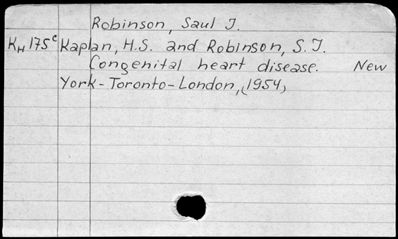 Robinson, Saul J.
KH 175c Kaplan, H.S. and Robinson, S.J.
Congenital heart disease. New
York-Toronto-London, (1954)